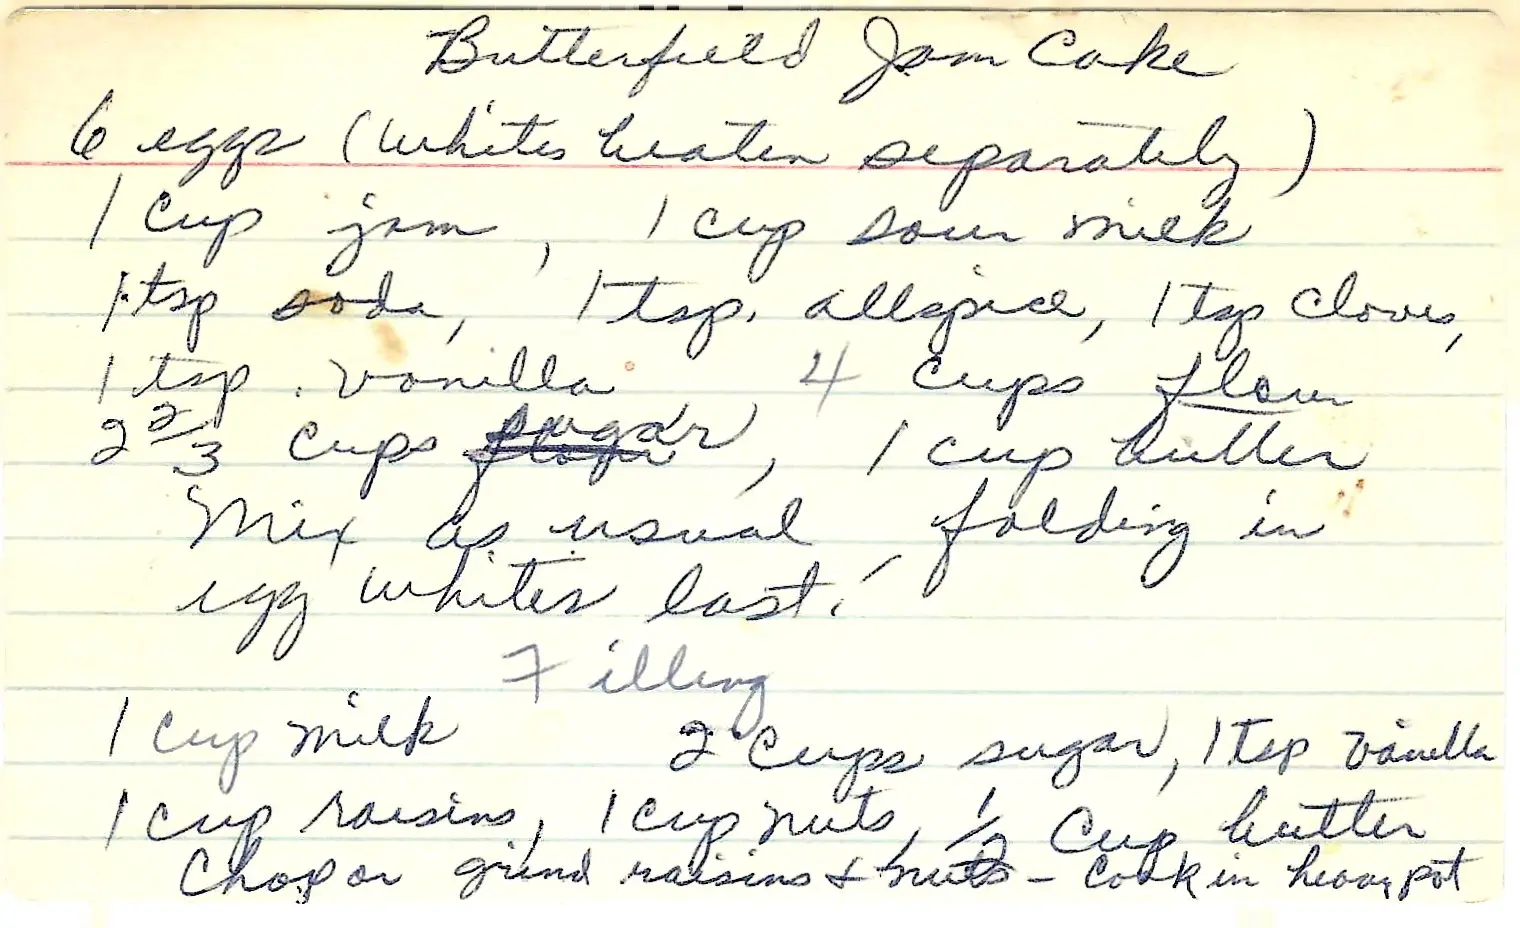 Butterfield Jam Cake
6 eggs (whites beaten separately)
1 cup jam, 1 cup sour milk
1 tsp soda, 1 tsp. allspice, 1 tsp cloves,
1 tsp. vanilla 4 cups flour
2 2/3 cups sugar, 1 cup butter
Mix as usual, folding in
egg whites last.
Filling
1 cup milk 2 cups sugar, 1 tsp vanilla
1 cup raisins, 1 cup nuts, 1/2 cup butter
Chop or grind raisins + nuts - Cook in heavy pot